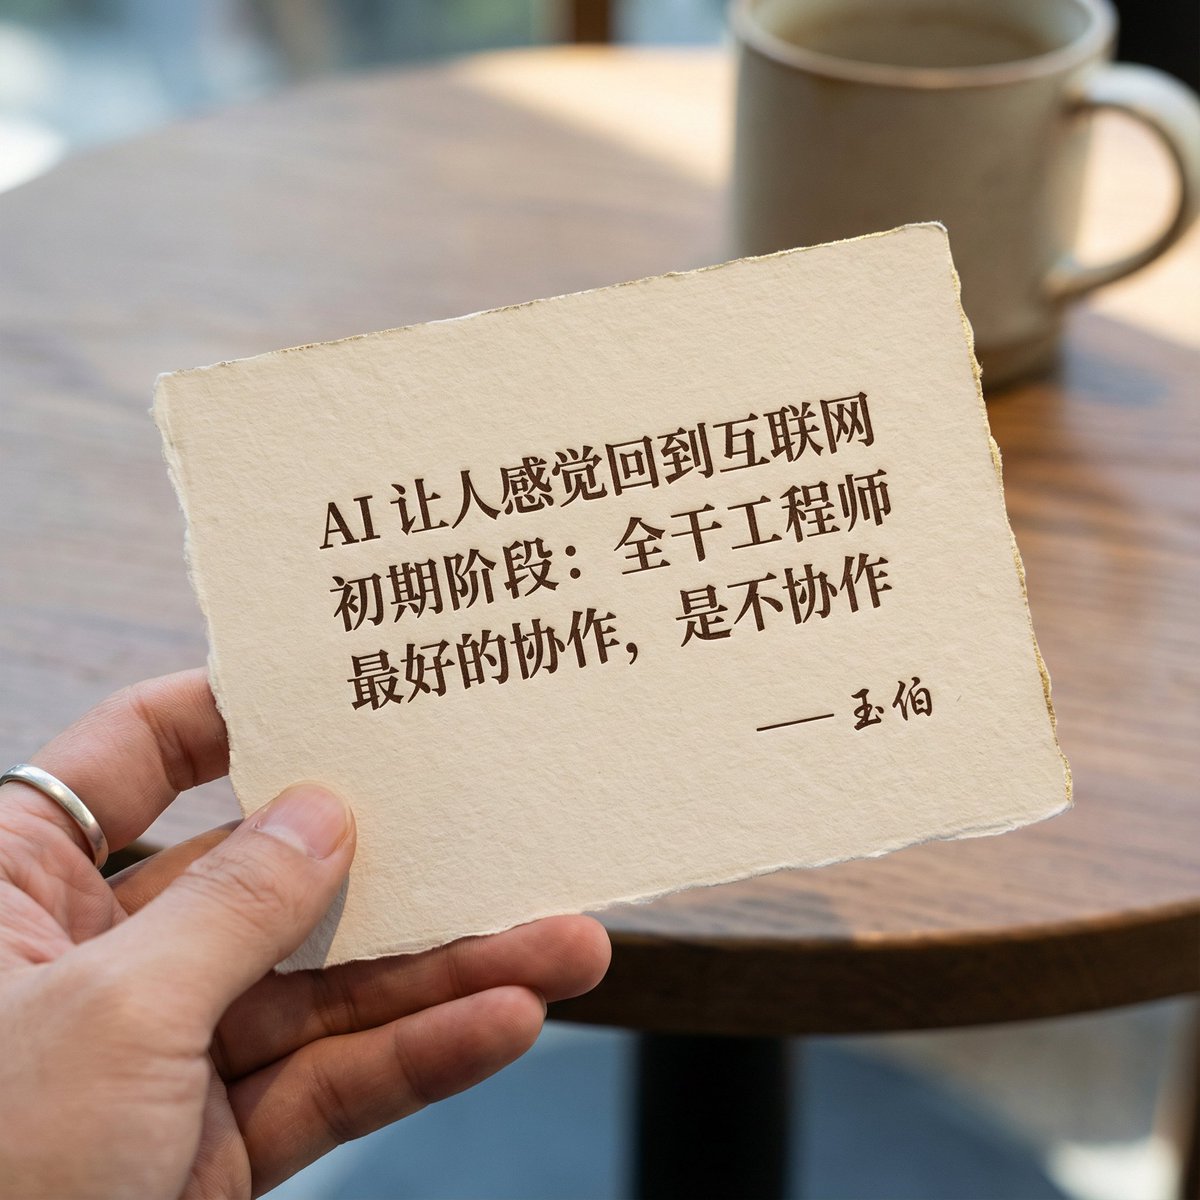 AI 让人感觉回到互联网
初期阶段：全干工程师
最好的协作，是不协作
—— 玉伯